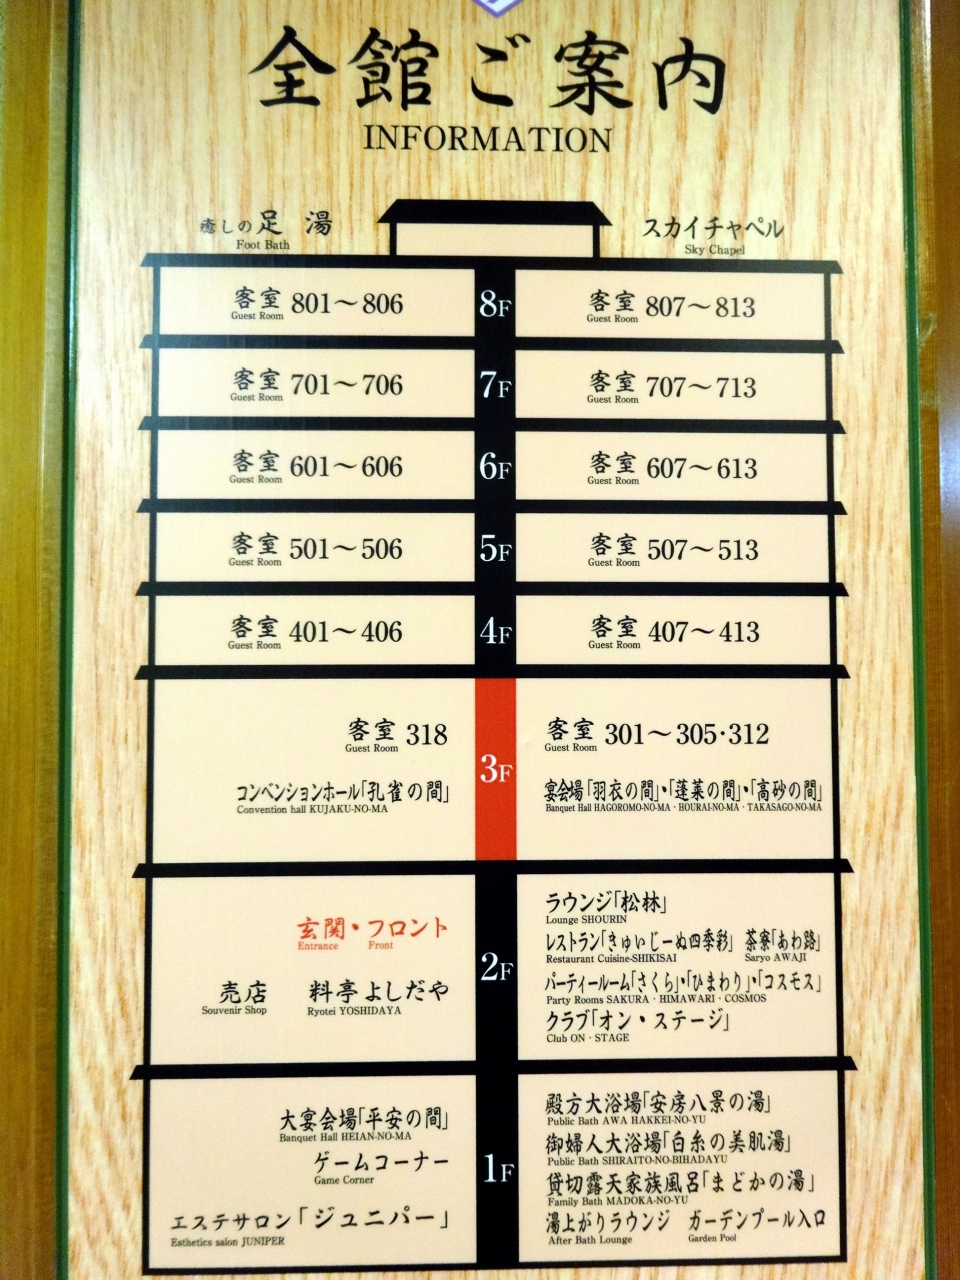 全館ご案内
INFORMATION
癒しの足湯
Foot Bath
スカイチャペル
Sky Chapel
客室 801～806
Guest Room
8F
客室 807～813
Guest Room
客室 701～706
Guest Room
7F
客室 707～713
Guest Room
客室 601～606
Guest Room
6F
客室 607～613
Guest Room
客室 501～506
Guest Room
5F
客室 507～513
Guest Room
客室 401～406
Guest Room
4F
客室 407～413
Guest Room
客室 318
Guest Room
コンベンションホール「孔雀の間」
Convention hall KUJAKU-NO-MA
3F
客室 301～305・312
Guest Room
宴会場「羽衣の間」・「蓬莱の間」・「高砂の間」
Banquet Hall HAGOROMO-NO-MA・HOURAI-NO-MA・TAKASAGO-NO-MA
玄関・フロント
Entrance Front
売店 料亭よしだや
Souvenir Shop Ryotei YOSHIDAYA
2F
ラウンジ「松林」
Lounge SHOURIN
レストラン「きゅいじーぬ四季彩」 茶寮「あわ路」
Restaurant Cuisine-SHIKISAI Saryo AWAJI
パーティールーム「さくら」・「ひまわり」・「コスモス」
Party Rooms SAKURA・HIMAWARI・COSMOS
クラブ「オン・ステージ」
Club ON・STAGE
大宴会場「平安の間」
Banquet Hall HEIAN-NO-MA
ゲームコーナー
Game Corner
エステサロン「ジュニパー」
Esthetics salon JUNIPER
1F
殿方大浴場「安房八景の湯」
Public Bath AWA HAKKEI-NO-YU
御婦人大浴場「白糸の美肌湯」
Public Bath SHIRAITO-NO-BIHADAYU
貸切露天家族風呂「まどかの湯」
Family Bath MADOKA-NO-YU
湯上がりラウンジ ガーデンプール入口
After Bath Lounge Garden Pool